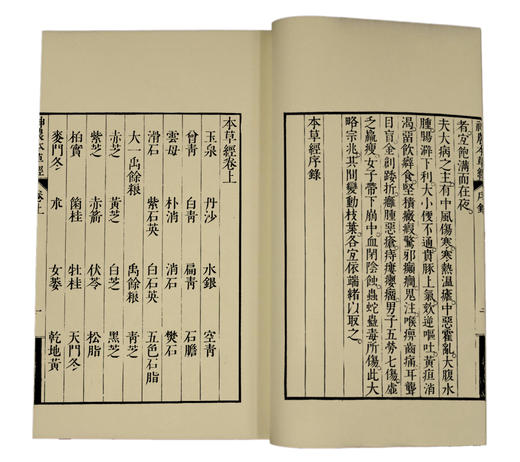 神農本草經 序錄 二
者宜飽滿而在夜。
夫大病之主有中風傷寒寒熱溫瘧中惡霍亂大腹水
腫腸澼下利大小便不通賁豚上氣欬逆嘔吐黃疸消
渴留飲癖食堅積癥瘕驚邪癲癇鬼注喉痹齒痛耳聾
目盲金創踒折癰腫惡瘡痔瘻癭瘤男子五勞七傷虛
乏羸瘦女子帶下崩中血閉陰蝕蟲蛇蠱毒所傷此大
略宗兆其間變動枝葉各宜依端緒以取之。
本草經序錄
本草經卷上
玉泉 丹沙 水銀 空青
曾青 白青 扁青 石膽
雲母 朴消 消石 樊石
滑石 紫石英 白石英 五色石脂
大一禹餘糧 禹餘糧 青芝
赤芝 黃芝 白芝 黑芝
紫芝 赤箭 伏苓 松脂
柏實 箘桂 牡桂 天門冬
麥門冬 朮 女萎 乾地黃
神農本草經 卷上 一